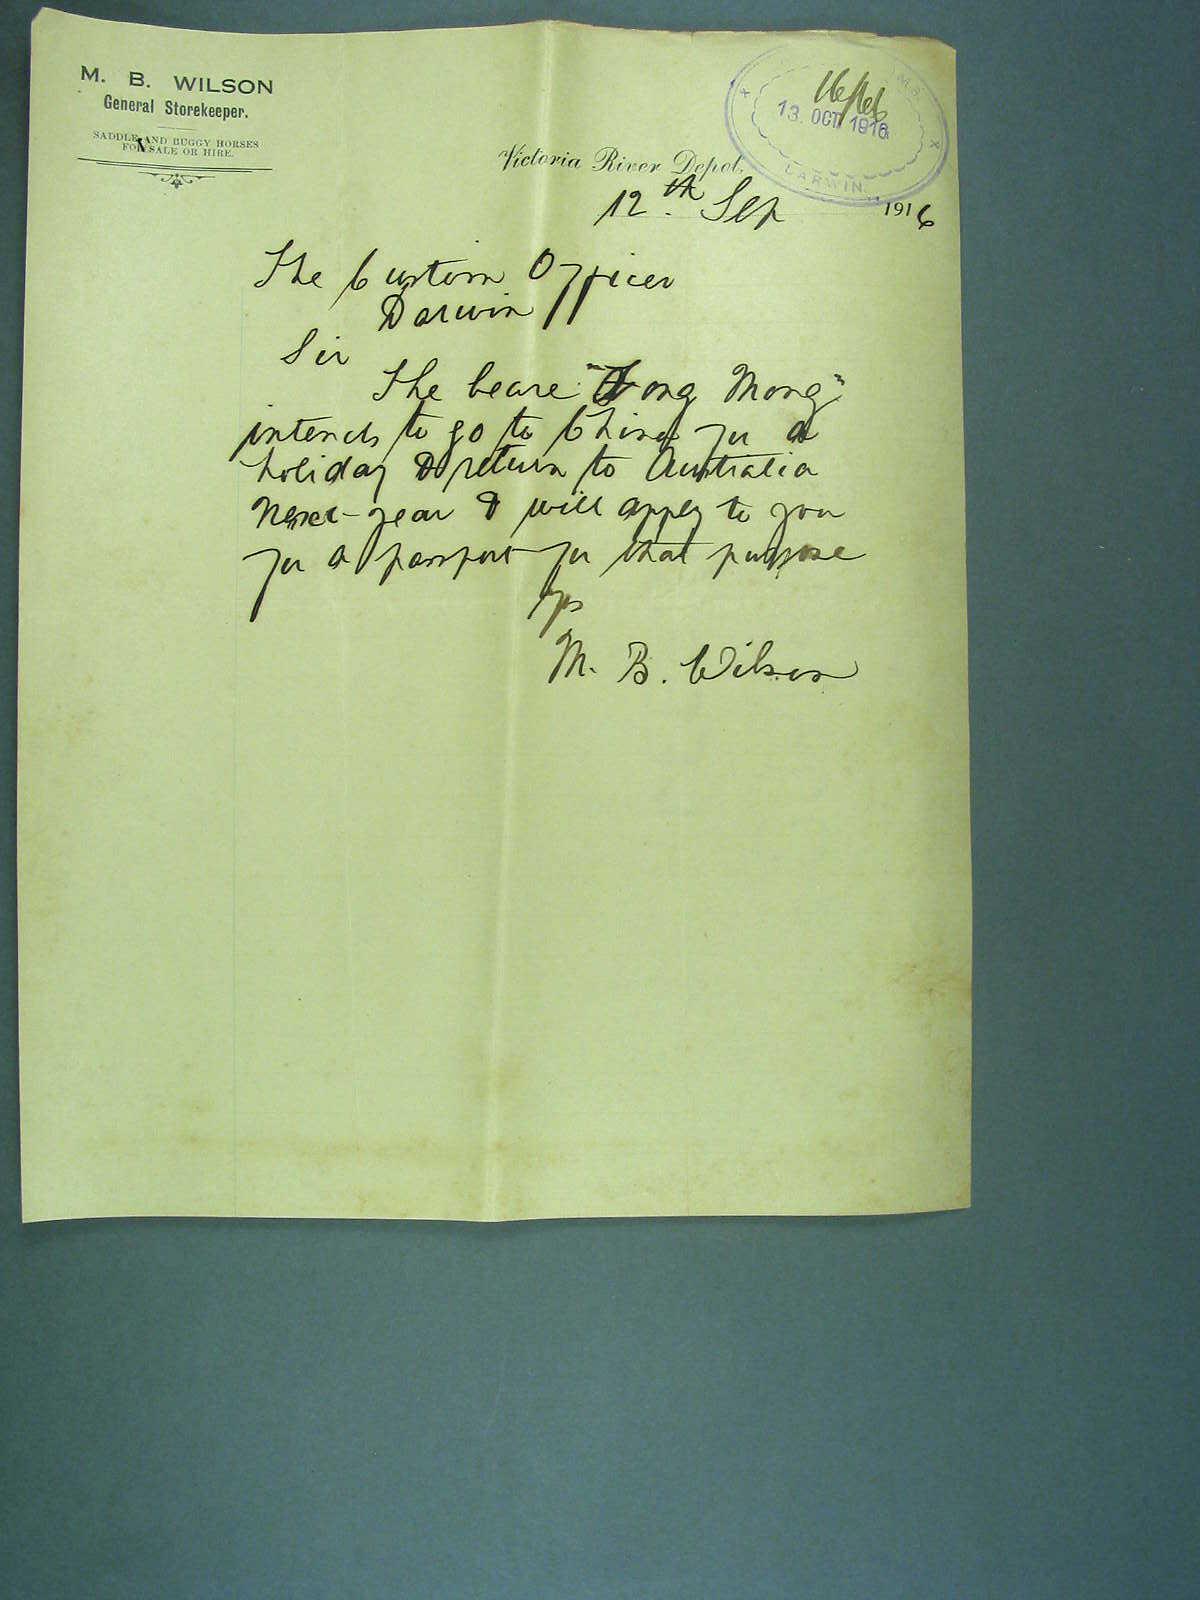 M. B. WILSON
General Storekeeper.
SADDLE AND BUGGY HORSES
FOR SALE OR HIRE.
13. OCT. 1916
DARWIN.
Victoria River Depot.
12th Sep 1916
The Custom Officer
Darwin
Sir
The beare "Fong Mong"
intends to go to China for a
holiday & return to Australia
Next year & will apply to you
for a passport for that purpose
Yrs
M. B. Wilson